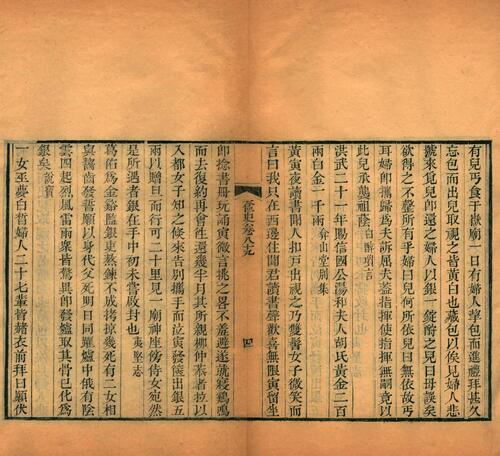 有兒丐食于嶽廟一日有婦人挈包而進禮拜甚久
忘包而出兒取視之皆黃白也藏包以俟見婦人悲
號來覓兒卽還之婦人以銀一錠酧之兒曰毋誤矣
欲得之不整所有乎婦曰兒何所依兒曰無依故丐
耳婦卽攜歸爲夫訴屈夫葢指揮使指揮無嗣竟以
此兒承襲祖䕃 白醉璅言
洪武二十一年賜信國公湯和夫人胡氏黃金二百
兩白金一千兩 弇山堂別集
黃寅夜讀書聞人扣戸出視之乃雙鬟女子微笑而
言曰我只在西邊住聞君讀書聲歡喜無限寅留坐
奩史卷八九
四
卽捻書冊玩誦寅微言挑之畧不羞避遂就寢鷄鳴
而去復約再會往還幾半月其所親柳仲恭者拉以
入都女子知之候來告別攜手而泣寅發篋出銀五
兩以贈旦而行可二十里見一廟神座傍侍女宛然
是所遇者銀在手中初未嘗啟封也 夷堅志
葛佑爲金谿監銀吏熬鍊不成拷掠幾死有二女相
與齧齒發誓願以身代父死明日同躍爐中俄有陰
雲四起烈風雷雨衆皆驚異卽發爐取其骨已化爲
銀矣 說寶
一女巫夢白晳婦人二十七輩皆赭衣前拜曰願伏